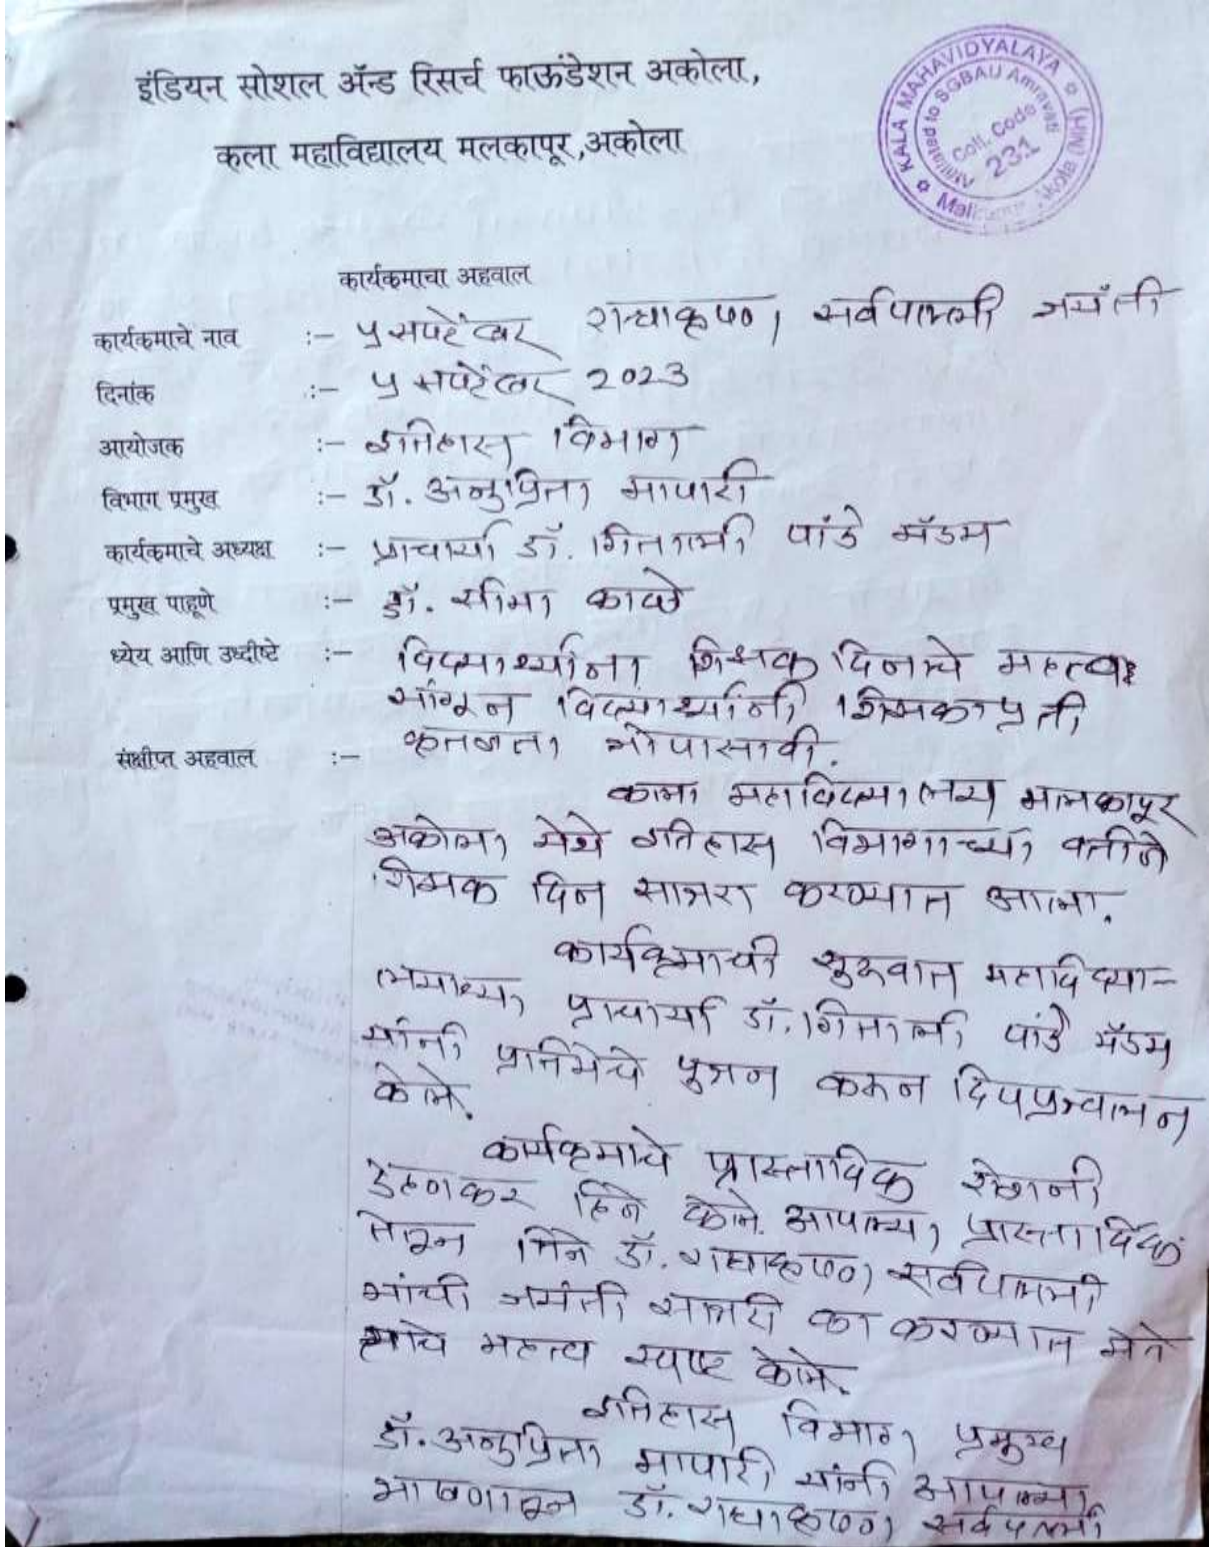 इंडियन सोशल ॲन्ड रिसर्च फाऊंडेशन अकोला,
कला महाविद्यालय मलकापूर,अकोला
KALA MAHAVIDYALAYA
Affiliated to SGBAU Amravati
Coll. Code
231
Malkapur, Akola (MH)
कार्यक्रमाचा अहवाल
कार्यक्रमाचे नाव :- ५ सप्टेंबर राधाकृष्णन सर्वपल्ली जयंती
दिनांक :- ५ सप्टेंबर 2023
आयोजक :- इतिहास विभाग
विभाग प्रमुख :- डॉ. अनुप्रिता मापारी
कार्यक्रमाचे अध्यक्ष :- प्राचार्या डॉ. गिताली पांडे मॅडम
प्रमुख पाहूणे :- डॉ. सीमा काळे
ध्येय आणि उध्दीष्टे :- विद्यार्थ्यांना शिक्षक दिनाचे महत्व
सांगून विद्यार्थ्यांनी शिक्षकाप्रती
कृतज्ञता जोपासावी.
संक्षीप्त अहवाल :-
कला महाविद्यालय मलकापूर
अकोला येथे इतिहास विभागाच्या वतीने
शिक्षक दिन साजरा करण्यात आला.
कार्यक्रमाची सुरुवात महाविद्या-
लयाच्या प्राचार्या डॉ. गिताली पांडे मॅडम
यांनी प्रतिमेचे पुजन करून दिपप्रज्वालन
केले.
कार्यक्रमाचे प्रास्ताविक रोशनी
डहाणकर हिने केले. आपल्या प्रास्ताविके
तून तिने डॉ. राधाकृष्णन सर्वपल्ली
यांची जयंती साजरी का करण्यात येते
याचे महत्व स्पष्ट केले.
इतिहास विभाग प्रमुख
डॉ. अनुप्रिता मापारी यांनी आपल्या
भाषणातून डॉ. राधाकृष्णन सर्वपल्ली